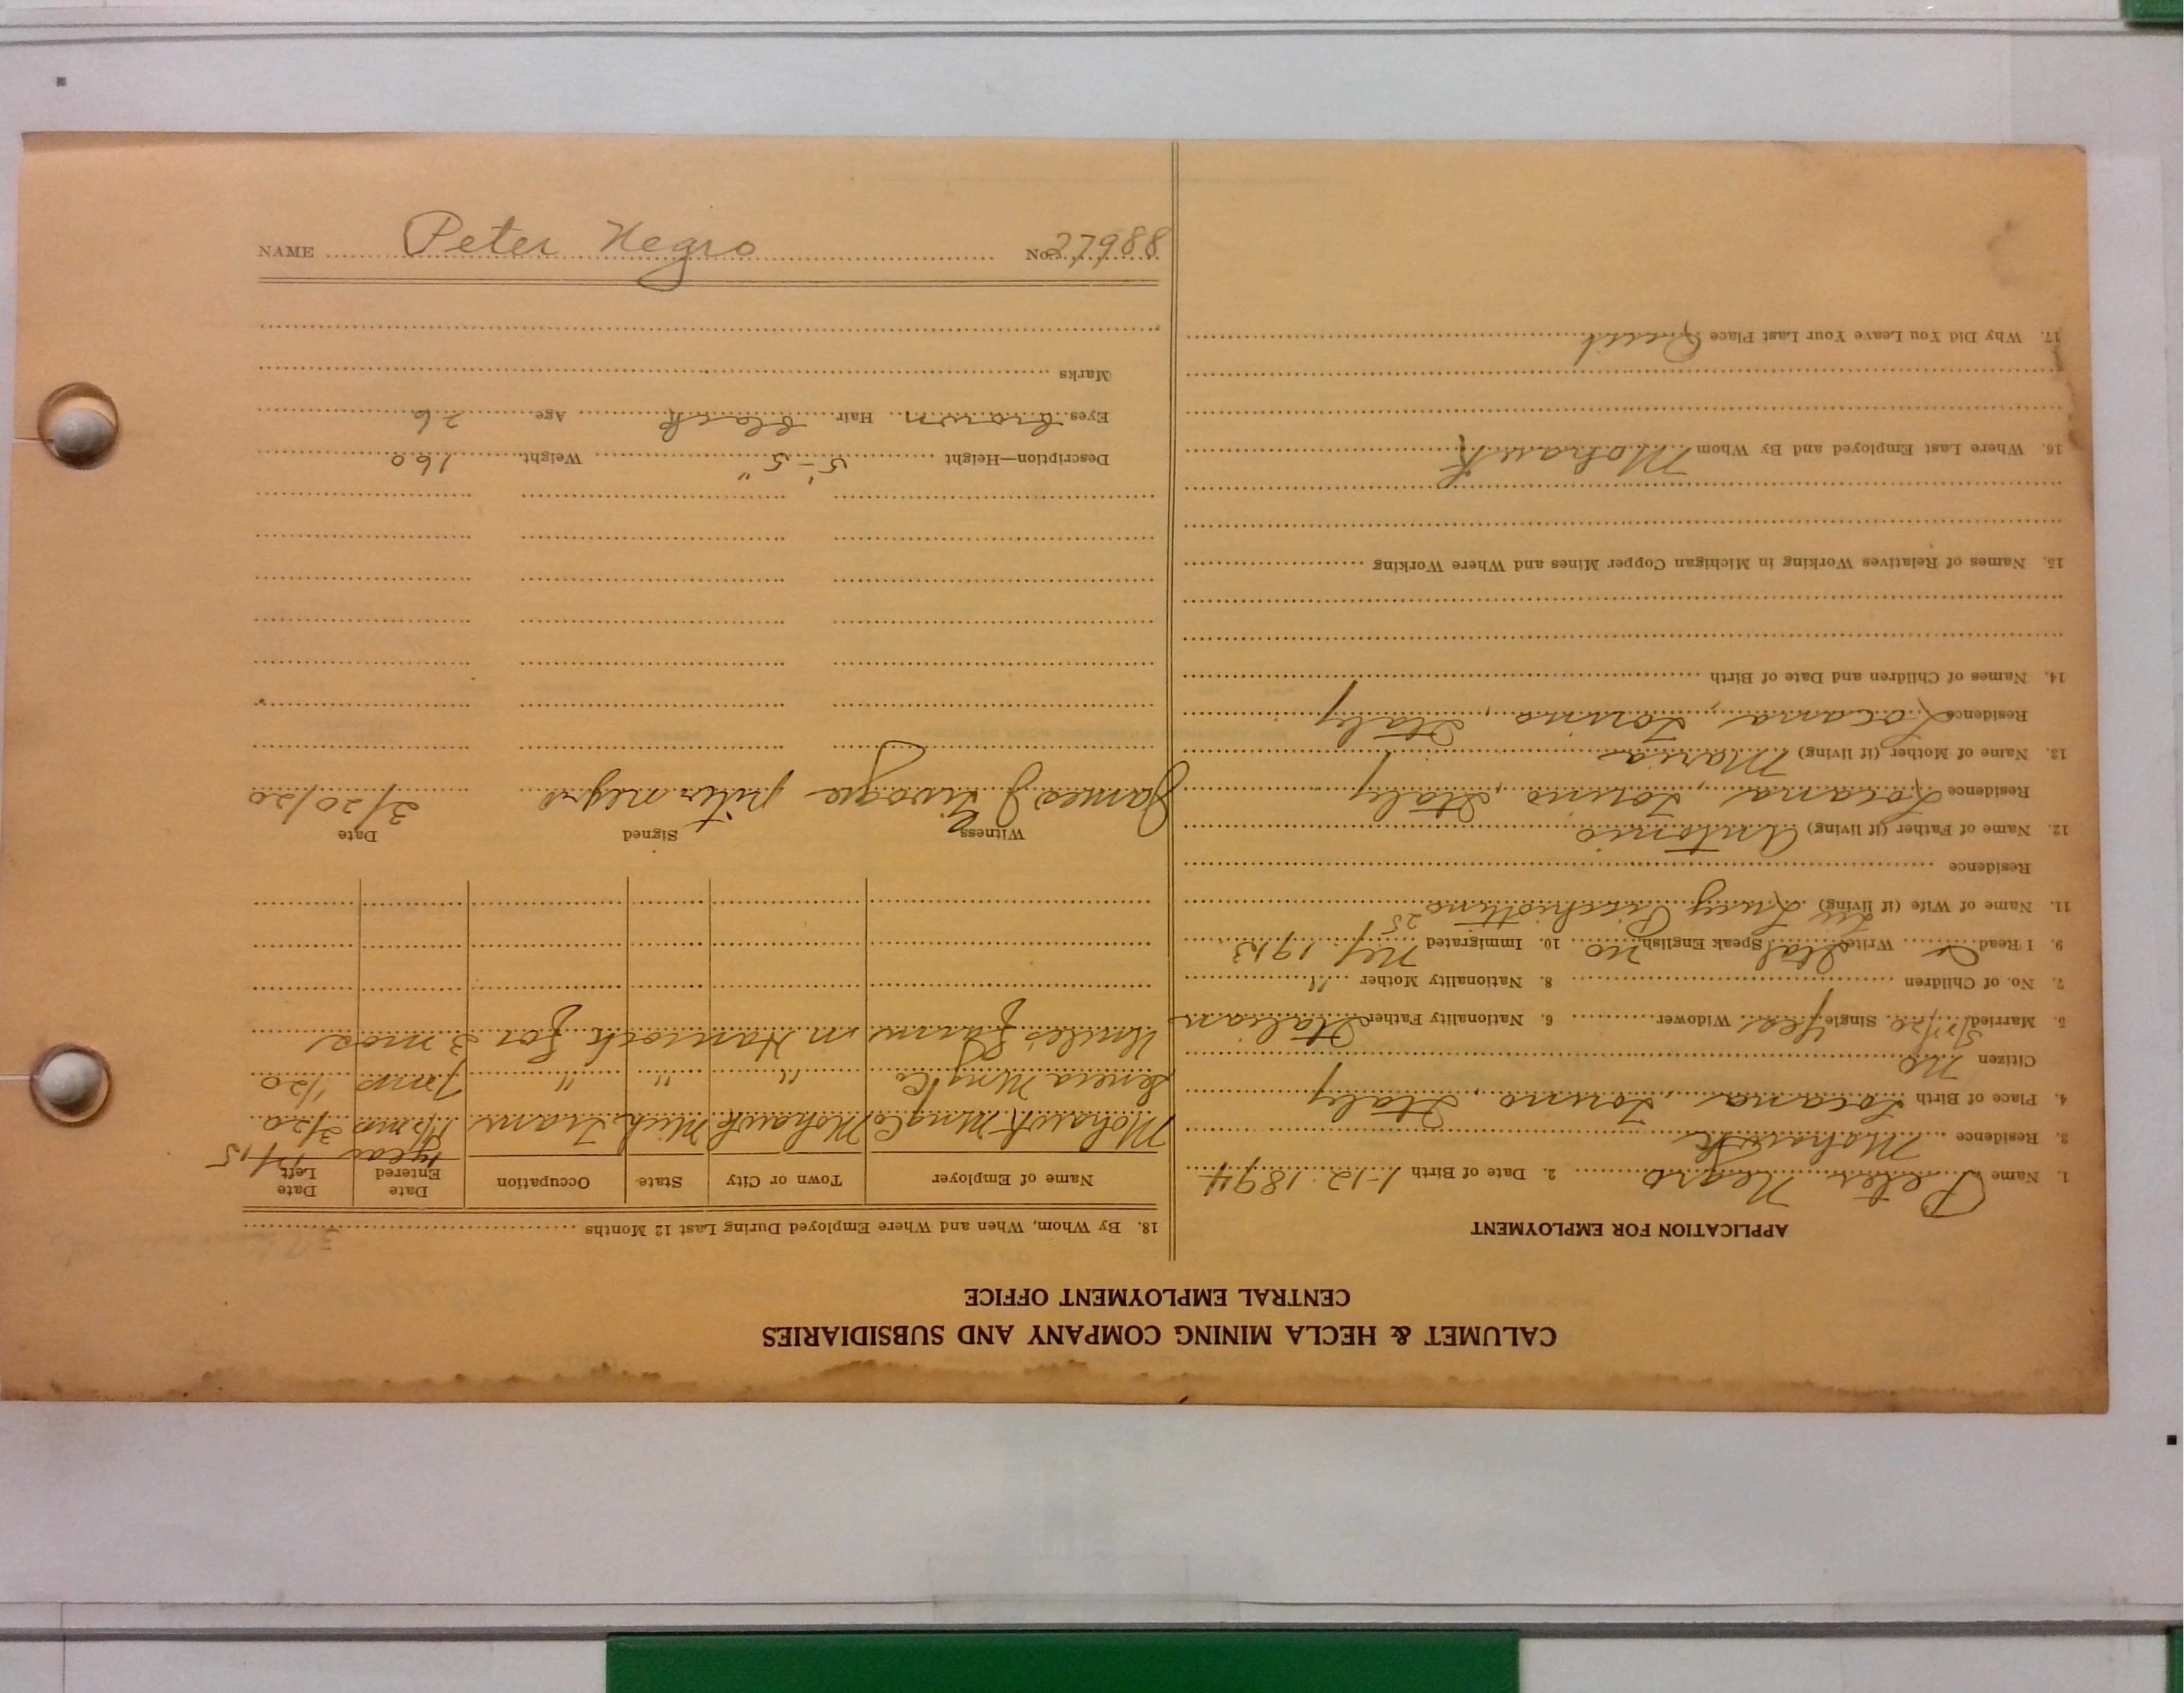 NAME Peter Negro No. 27988
CALUMET & HECLA MINING COMPANY AND SUBSIDIARIES
CENTRAL EMPLOYMENT OFFICE
APPLICATION FOR EMPLOYMENT
1. Name Peter Negro 2. Date of Birth 1-12-1894
3. Residence Mohawk
4. Place of Birth Locana, Torino, Italy
Citizen no
5. Married Single yes Widower 6. Nationality Father Italian
7. No. of Children 8. Nationality Mother "
9. I Read Write Ital Speak English no 10. Immigrated N.Y. 1913
11. Name of Wife (if living) Lucy
Residence
12. Name of Father (if living) Antonio
Residence Locana, Torino, Italy
13. Name of Mother (if living) Maria
Residence Locana, Torino, Italy
14. Names of Children and Date of Birth
15. Names of Relatives Working in Michigan Copper Mines and Where Working
16. Where Last Employed and By Whom Mohawk
17. Why Did You Leave Your Last Place Quit
18. By Whom, When and Where Employed During Last 12 Months
Name of Employer Town or City State Occupation Date Entered Date Left
Mohawk Mng Co Mohawk Mich Tram 3/20
Seneca Mng Co " " " 1/20
Uncles Farm in Hancock for 3 mos
Witness Signed Date
James J peter negro 3/20/20
Description—Height 5'-5" Weight 160
Eyes brown Hair black Age 26
Marks